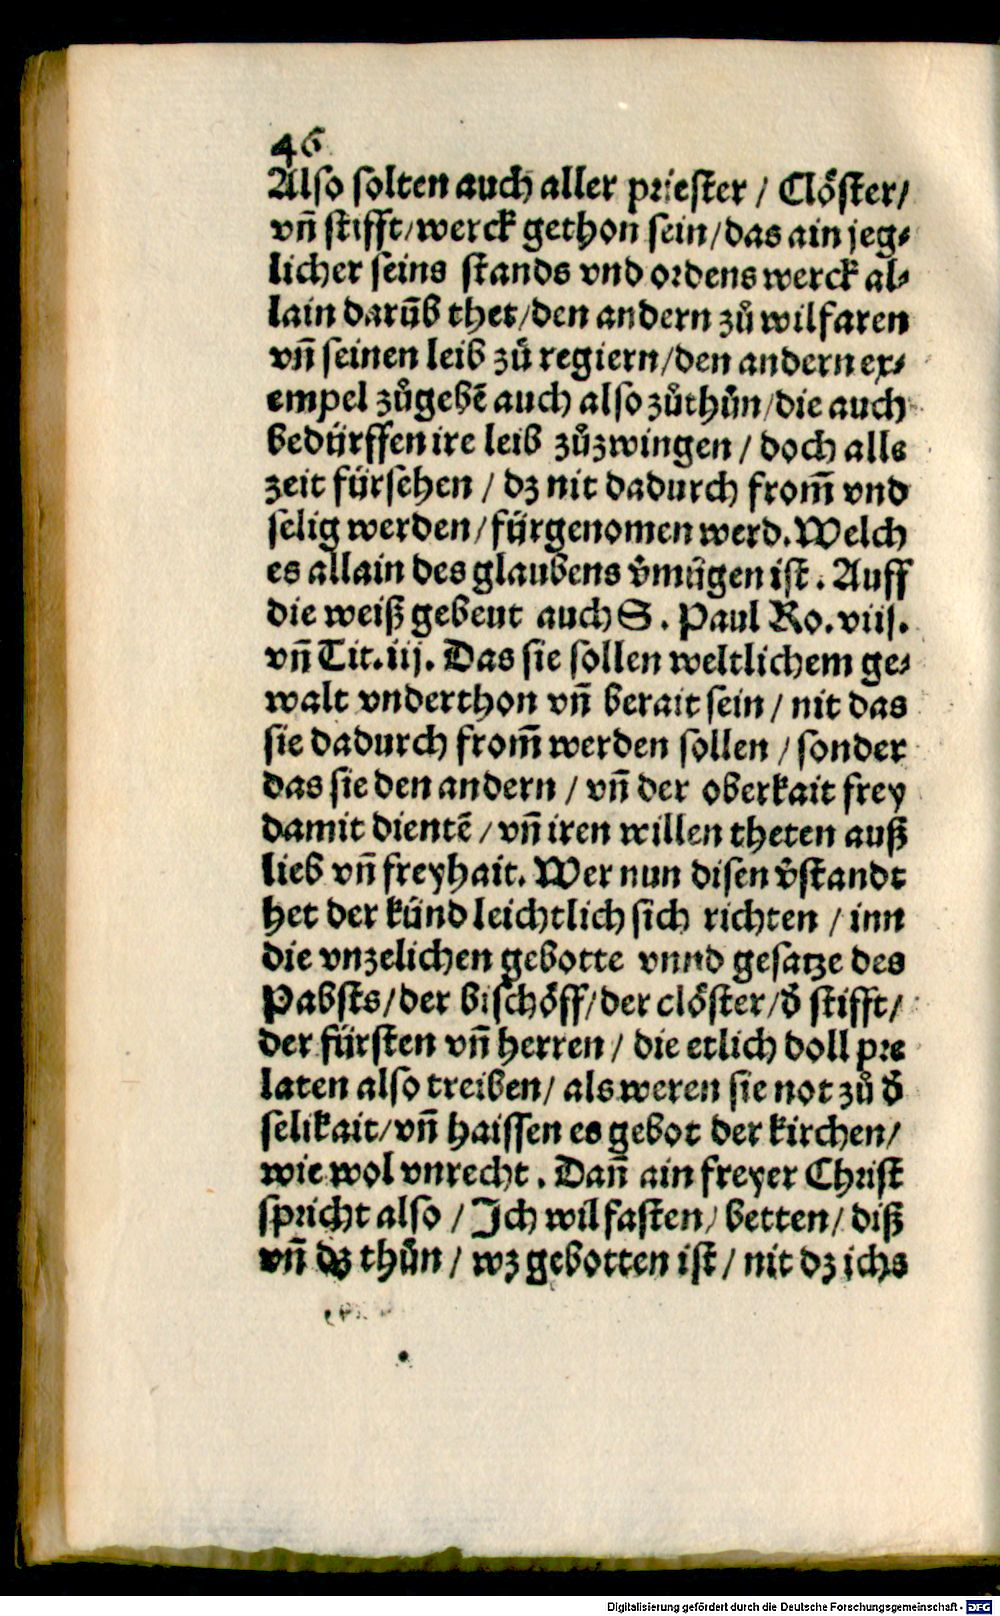 46
Also solten auch aller priester / Clöster /
vn̄ stifft / werck gethon sein / das ain jeg⸗
licher seins stands vnd ordens werck al⸗
lain darūb thet / den andern zů wilfaren
vn̄ seinen leib zů regiern / den andern ex⸗
empel zůgebē auch also zůthůn / die auch
bedürffen ire leib zůzwingen / doch alls
zeit fürsehen / dz nit dadurch from̄ vnd
selig werden / fürgenomen werd. Welch
es allain des glaubens v̓mügen ist. Auff
die weiß gebeut auch S. Paul Ro. viij.
vn̄ Tit. iij. Das sie sollen weltlichem ge⸗
walt vnderthon vn̄ berait sein / nit das
sie dadurch from̄ werden sollen / sonder
das sie den andern / vn̄ der oberkait frey
damit dientē / vn̄ iren willen theten auß
lieb vn̄ freyhait. Wer nun disen v̓standt
het der künd leichtlich sich richten / inn
die vnzelichen gebotte vnnd gesatze des
Pabsts / der bischöff / der clöster / d̓ stifft /
der fürsten vn̄ herren / die etlich doll pre
laten also treiben / als weren sie not zů d̓
selikait / vn̄ haissen es gebot der kirchen /
wie wol vnrecht. Dan̄ ain freyer Christ
spricht also / Ich wil fasten / betten / diß
vn̄ dz thůn / wz gebotten ist / nit dz ichs
Digitalisierung gefördert durch die Deutsche Forschungsgemeinschaft - DFG